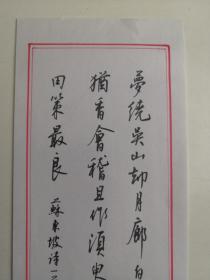 夢繞吳山却月廊白
猶香會稽且作須臾
田策最良 蘇東坡詩一